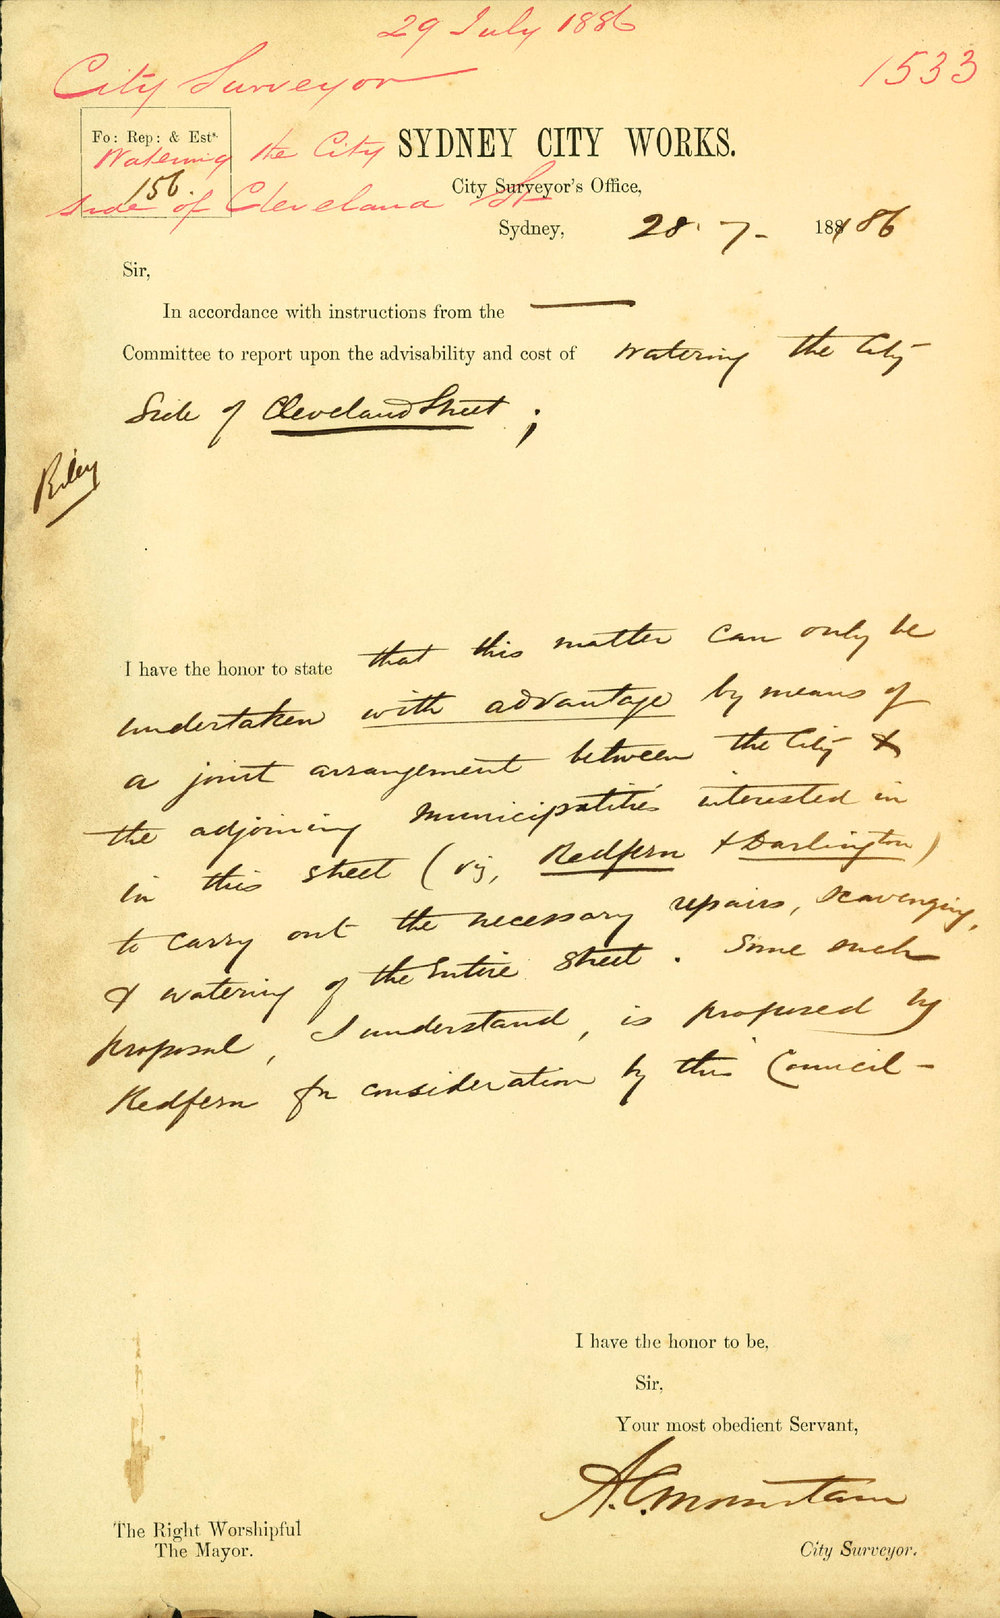 29 July 1886
City Surveyor
1533
Fo: Rep: & Ests.
Watering the City
156
side of Cleveland St
SYDNEY CITY WORKS.
City Surveyor's Office,
Sydney, 28. 7 - 188 / 86
Sir,
In accordance with instructions from the ———
Committee to report upon the advisability and cost of Watering the City
Side of Cleveland Street ;
Riley
I have the honor to state that this matter can only be
undertaken with advantage by means of
a joint arrangement between the City &
the adjoining Municipalities interested in
in this street (viz, Redfern & Darlington)
to carry out the necessary repairs, scavenging,
& watering of the Entire street. Some such
proposal, I understand, is proposed by
Redfern for consideration by this Council -
I have the honor to be,
Sir,
Your most obedient Servant,
A.C. Mountain
City Surveyor.
The Right Worshipful
The Mayor.